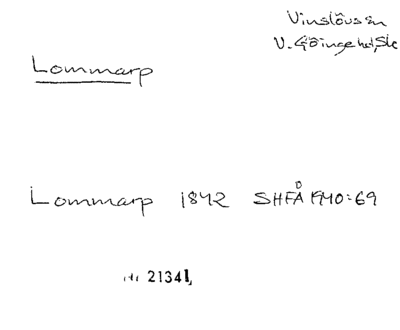 Vinslövs sn
V. Göinge hd, Sk
Lommarp
Lommarp 1842 SHFÅ 1940:69
21341